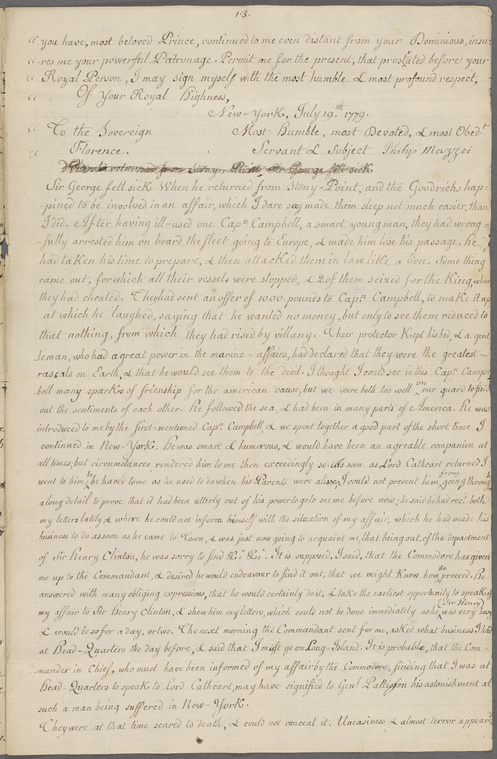 13.
" you have, most beloved Prince, continued to me even distant from your Dominious, insu-
" res me your powerful Patronage. Permit me for the present, that prostated before your
" Royal Person, I may sign myself with the most humble & most profound respect,
" Of Your Royal Highness,
New-York, July 19.th 1779.
To the Sovereign Most Humble, most Devoted, & most Obedt
Florence. Servant & Subject Philip Mazzei
Sir George fell sick when he returned from Stony-Point, and the Goodrichs hap-
pined to be involved in an affair, which I dare say made them sleep not much easier, than
I did. After having ill-used one Capn Campbell, a smart young man, they had wrong=
fully arrested him on board the fleet going to Europe, & made him lose his passage. he
had taken his time to prepare, & then attacked them in law like a lion. Some thing
came out, for which all their vessels were stopped, & 2 of them seized for the King, whom
they had cheated. They had sent an offer of 1000 pounds to Capn Campbell, to make it up
at which he laughed, saying that he wanted no money, but only to see them reduced to
that nothing, from which they had rised by villany. Their protector kept his bed, & a gent
leman, who had a great power in the marine-affairs, had declared that they were the greatest
rascals on Earth, & that he would see them to the devil. I thought I could see in this Capn Camp-
bell many sparks of frienship for the american cause, but we were both too well our guard to find
out the sentiments of each other. He followed the sea, & had been in many parts of America. He was
introduced to me by the first-mentioned Capn Campbell, & we spent together a good part of the short time I
continued in New-York. He was smart & humorous, & would have been an agreable companion at
all times; but circumstances rendered him to me then exceedingly so. As soon as Lord Cathcart returned, I
went to him; he haved to me as he used to do when his Parents were alive; I could not prevent him from going through
a long detail to prove that it had been utterly out of his power to go to see me before now; he said he had recd both
my letters lately, & where he could not inform himself with the situation of my affair, which he had made his
business to do as soon as he came to Town, & was just now going to acquaint me, that being out of the department
of Sir Henry Clinton, he was sorry to find &c. &c. It is supposed, I said, that the Commodore has given
me up to the Commandant, & desired he would endeavour to find it out, that we might know how to proceed. He
answered with many obliging expressions, that he would certainly do it, & take the earliest opportunity to speak of
my affair to Sir Henry Clinton, & shew him my letters, which could not be done immediately as he (Sir Henry) was very busy
& would be so for a day, or two. The next morning the Commandant sent for me, asked what business I had
at Head-Quarters the day before, & said that I must go on Long-Island. It is probable, that the Com-
mander in Chief, who must have been informed of my affair by the Commodore, finding that I was at
Head-Quarters to speak to Lord Cathcart, may have signified to Genl Pattison his astonishment at
such a man being suffered in New-York.
They were at that time scared to death, & could not conceal it. Uneasiness & almost terror appeard